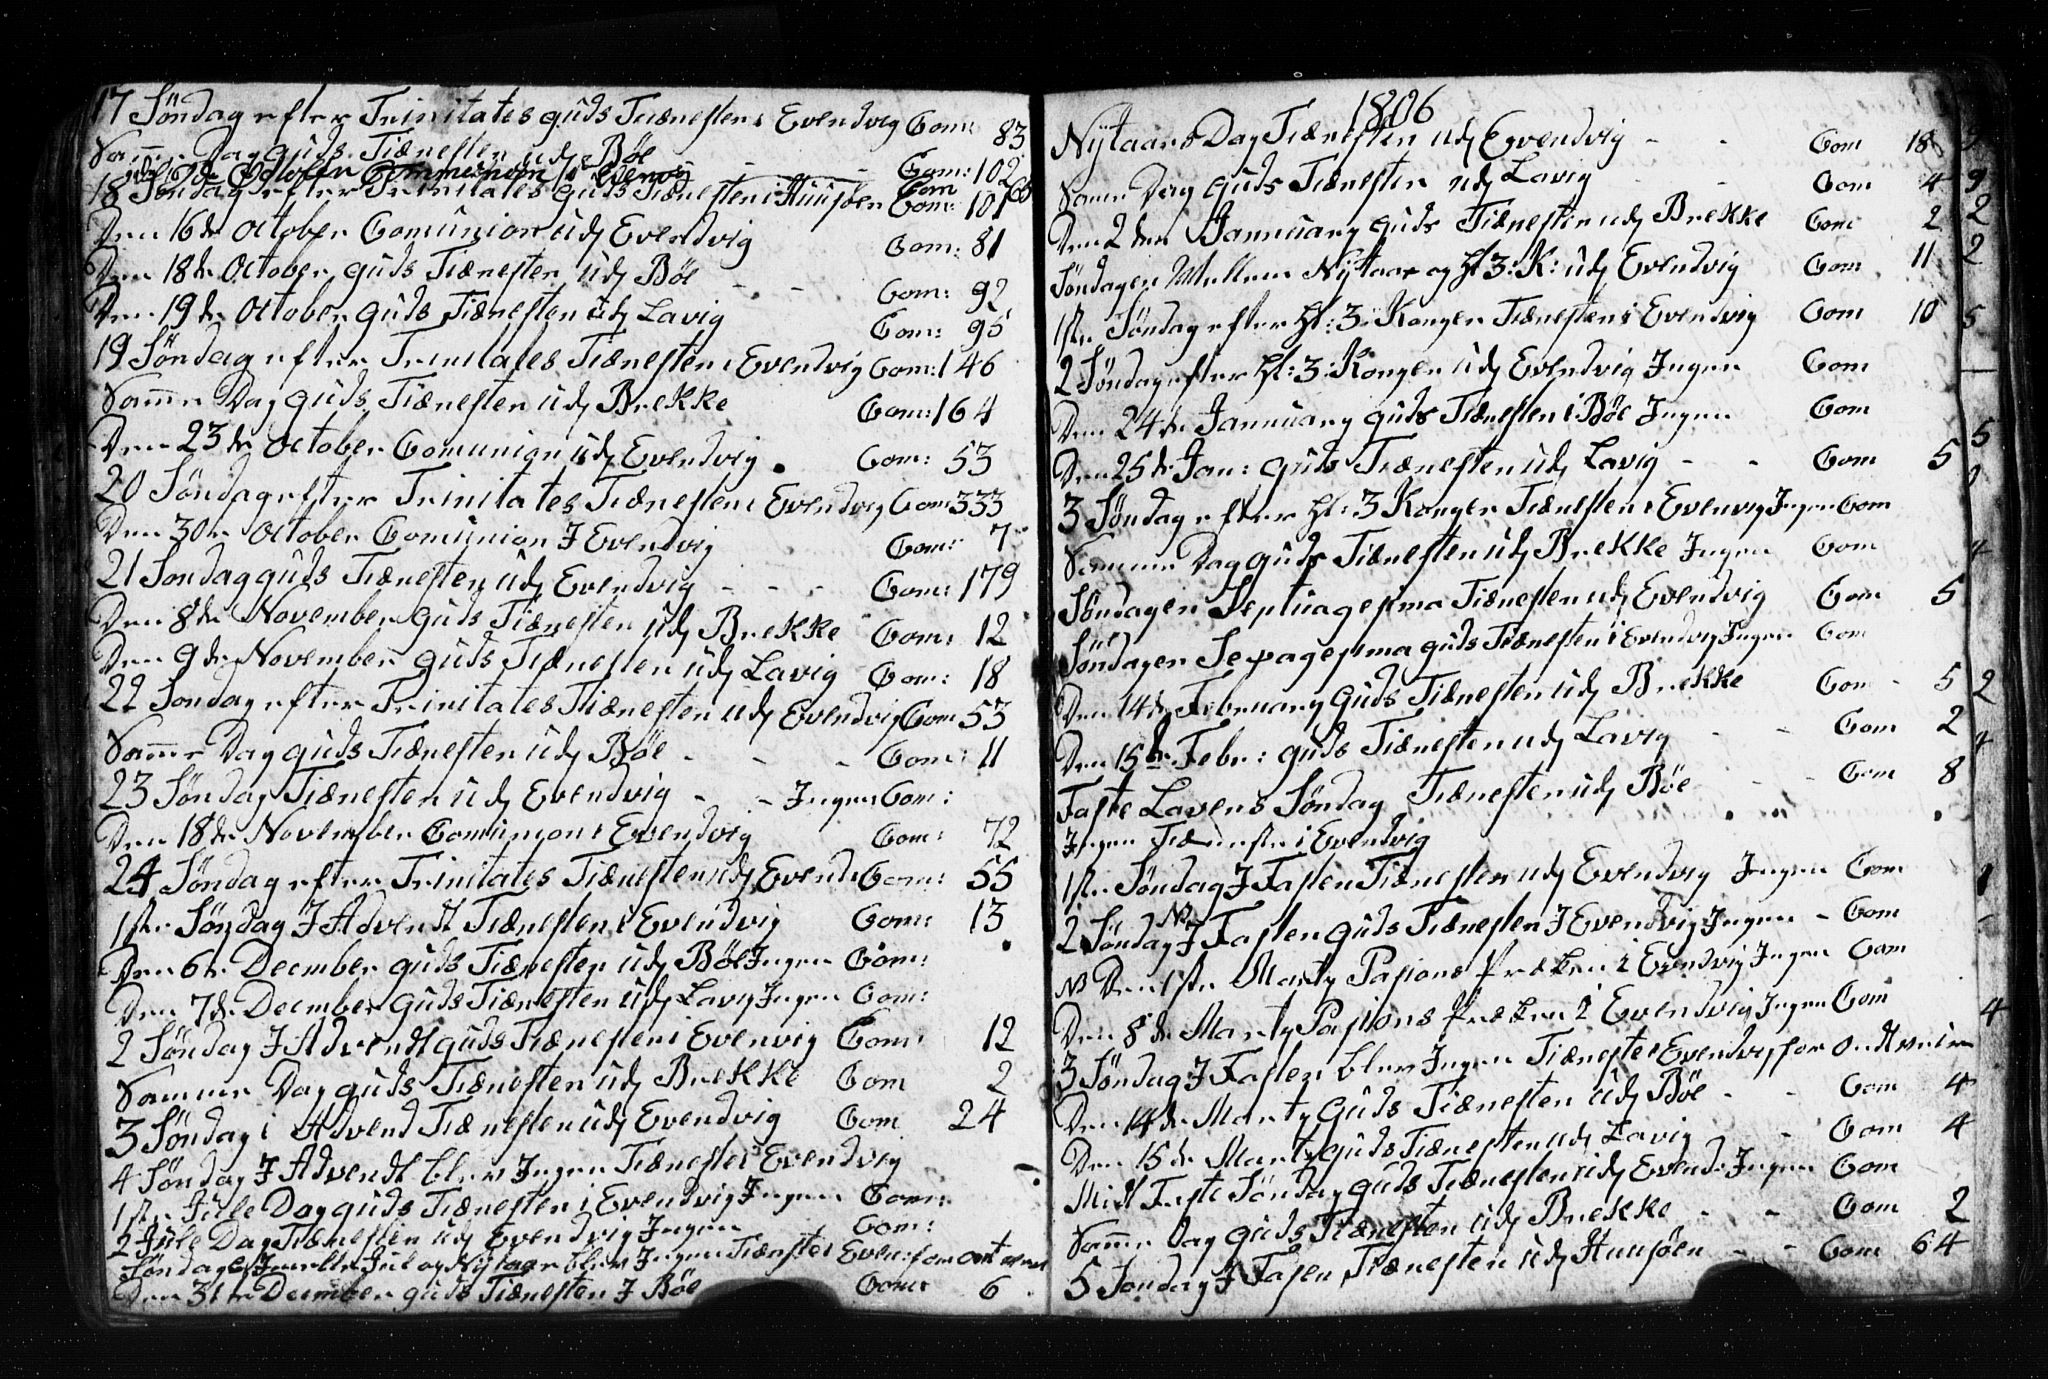 17 Søndag efter Trinitates Guds Tiænesten i Evendvig Com: 83
Samme Dag Guds Tiænesten udj Böe - Com: 102
October Communion i Evenvig Com 66
18 Søndag efter Trinitates Guds Tiænesten i Huusöen Com: 101
Den 16de October Comunion udj Evendvig Com: 81
Den 18de October Guds Tiænesten udj Böe - - Com: 92
Den 19de October Guds Tiænesten udj Lavig Com: 95
19 Søndag efter Trinitates Tiænesten i Evendvig Com: 146
Samme Dag Guds Tiænesten udj Brekke Com: 164
Den 23de October Comunion udj Evendvig Com: 53
20 Søndag efter Trinitates Tiænesten i Evendvig Com 333
Den 30te October Comunion I Evendvig Com: 7
21 Søndag Guds Tiænesten udj Evendvig - - - Com: 179
Den 8de November Guds Tiænesten udj Brekke Com: 12
Den 9de November Guds Tiænesten udj Lavig Com: 18
22 Søndag efter Trinitates Tiænesten udj Evendvig Com 53
Samme Dag Guds Tiænesten udj Böe - - - Com: 11
23 Søndag Tiænesten udj Evendvig - - Ingen Com:
Den 18de November Comunion i Evendvig Com: 72
24 Søndag efter Trinitates Tiænesten udj Evend Com: 55
1ste Søndag I Advendt Tiænesten i Evendvig Com: 13
Den 6te Decmber Guds Tiænesten udj Böe Ingen Com:
Den 7de Decmber Guds Tiænesten udj Lavig Ingen Com:
2 Søndag I Advendt Guds Tiænesten i Evenvig Com: 12
Samme Dag Guds Tiænesten udj Brekke Com 2
3 Søndag i Advend Tiænesten udj Evendvig Com 24
4 Søndag I Advendt blev Ingen Tiæneste i Evendvig
1ste Jule Dag Guds Tiænesten i Evendvig Ingen Com:
2 Jule Dag Tiænesten udj Evendvig Ingen Com:
Søndagen Jul og Nytaar blev Ingen Tiæneste i Even: for ont
Den 31te Decmber Guds Tiænesten I Böe Com: 6
1806
Nytaars Dag Tiænesten udj Evendvig - - Com 18
Samme Dag Guds Tiænesten udj Lavig - Com 4
Den 2den Januuary Guds Tiænesten udj Brekke Com 2
Søndagen Mellem Nytaar og hl 3: K: udj Evendvig Com 11
1ste Søndag efter hl: 3: Konger Tiænesten i Evendvig Com 10
2 Søndag efter hl: 3: Konger udj Evendvig Ingen Com
Den 24de Januuary Guds Tiænesten i Böe Ingen Com
Den 25de Jan: Guds Tiænesten udj Lavig - - Com 5
3 Søndag efter hl: 3 Konger Tiænesten i Evenvig Ingen Com
Samme Dag Guds Tiænesten udj Brekke Ingen Com
Søndagen Septuagesima Tiænesten udj Evendvig Com 5
Søndagen Sexagesima Guds Tiænesten i Evendvig Ingen Com
Den 14de February Guds Tiænesten udj Brekke Com - 5
Den 15de Febr: Guds Tiænesten udj Lavig - - Com 2
Faste Lavens Søndag Tiænesten udj Böe - - Com 8
Ingen Tiæneste i Evendvig
1ste Søndag I Fasten Tiænesten udj Evendvig Ingen Com
2 Søndag NB I Fasten Guds Tiænesten I Evendvig Ingen - Com
NB Den 1ste Marty Pasions Præken i Evendvig Ingen Com
Den 8de Marty Pasions Præken i Evendvig Ingen Com
3 Søndag I Fasten blev Ingen Tiæneste i Evendvig for Ondt
Den 14de Marty Guds Tiænesten udj Böe - - Com 4
Den 15de Marty Guds Tiænesten udj Lavig - Com 4
Midt Faste Søndag Guds Tiænesten udj Evend: Ingen Com
Samme Dag Guds Tiænesten udj Brekke - - Com 2
5 Søndag I Fasen Tiænesten udj Huusöen - - Com 64